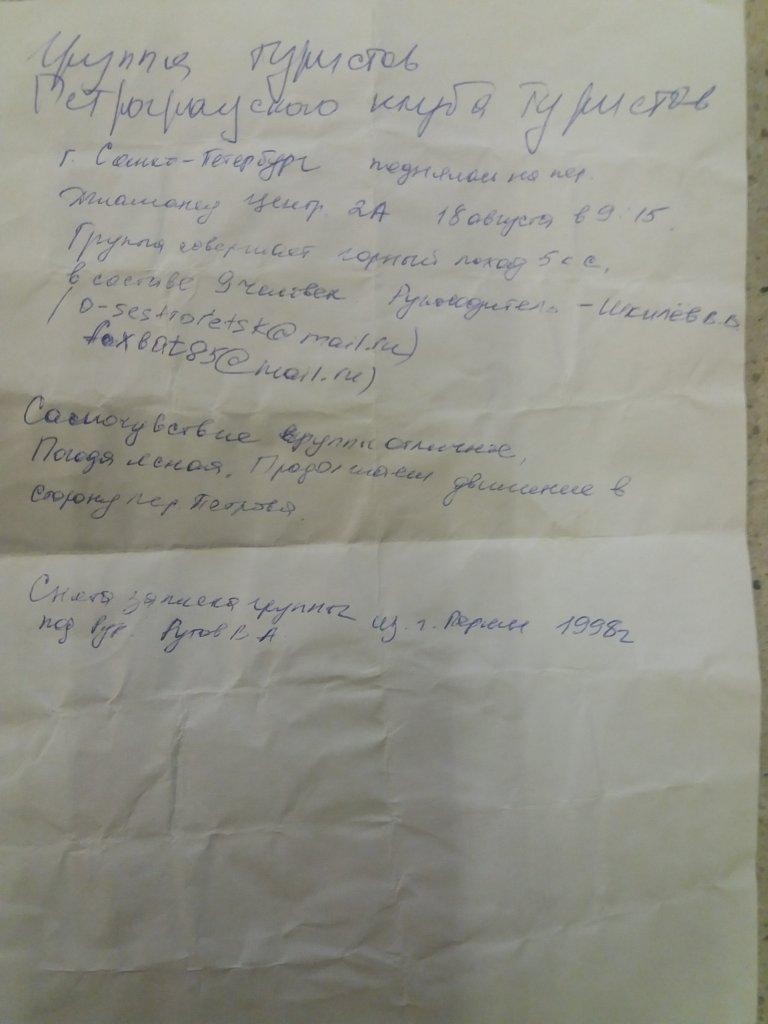 Группа туристов
Петроградского клуба туристов
г. Санкт-Петербург поднялась на пер.
Центр. 2А 18 августа в 9:15.
Группа совершает горный поход 5 к с,
в составе 9 человек. Руководитель - Шкилёв В.В.
(D-sestroretsk@mail.ru)
foxbat85@mail.ru)
Самочувствие группы отличное,
Погода ясная. Продолжаем движение в
сторону пер Петрова
Снята записка группы из г. Перми 1998г
под рук. В А